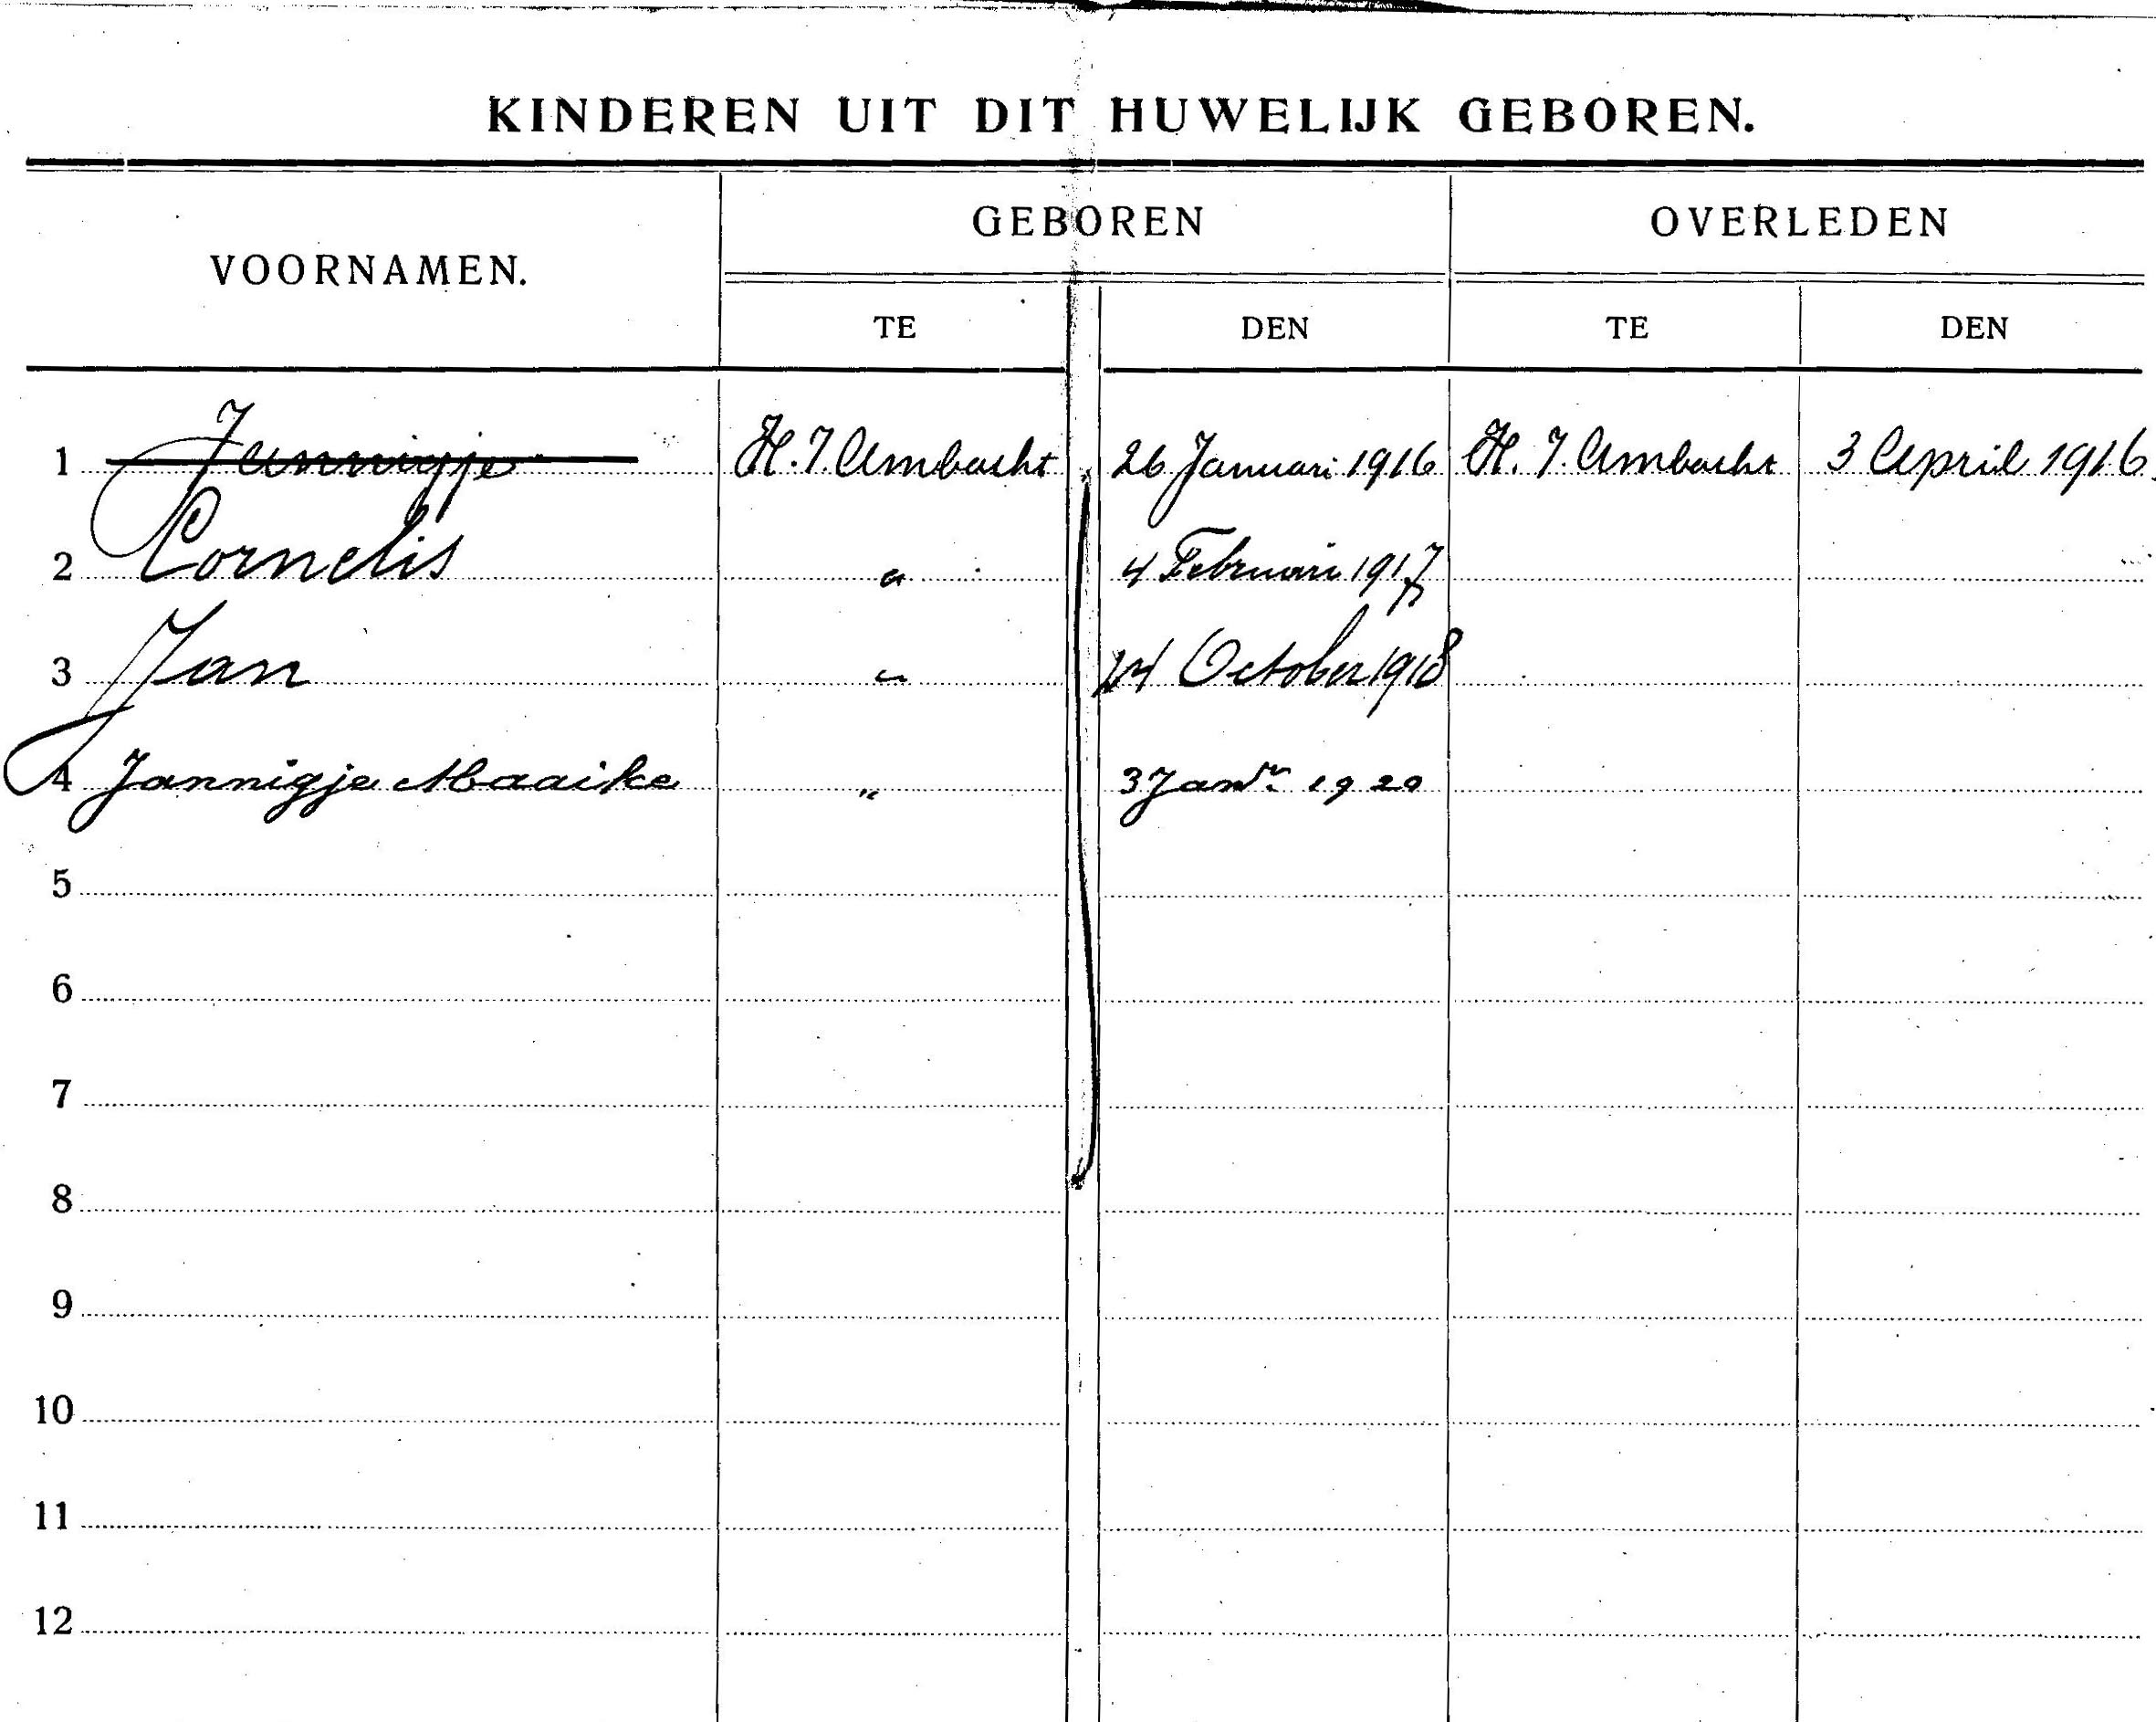 KINDEREN UIT DIT HUWELIJK GEBOREN.
VOORNAMEN. GEBOREN OVERLEDEN
TE DEN TE DEN
1 Jannigje H. I. Ambacht 26 Januari 1916 H. I. Ambacht 3 April 1916
2 Cornelis " 4 Februari 1917
3 Jan " 24 October 1918
4 Jannigje Maaike " 3 Janr. 1920
5
6
7
8
9
10
11
12